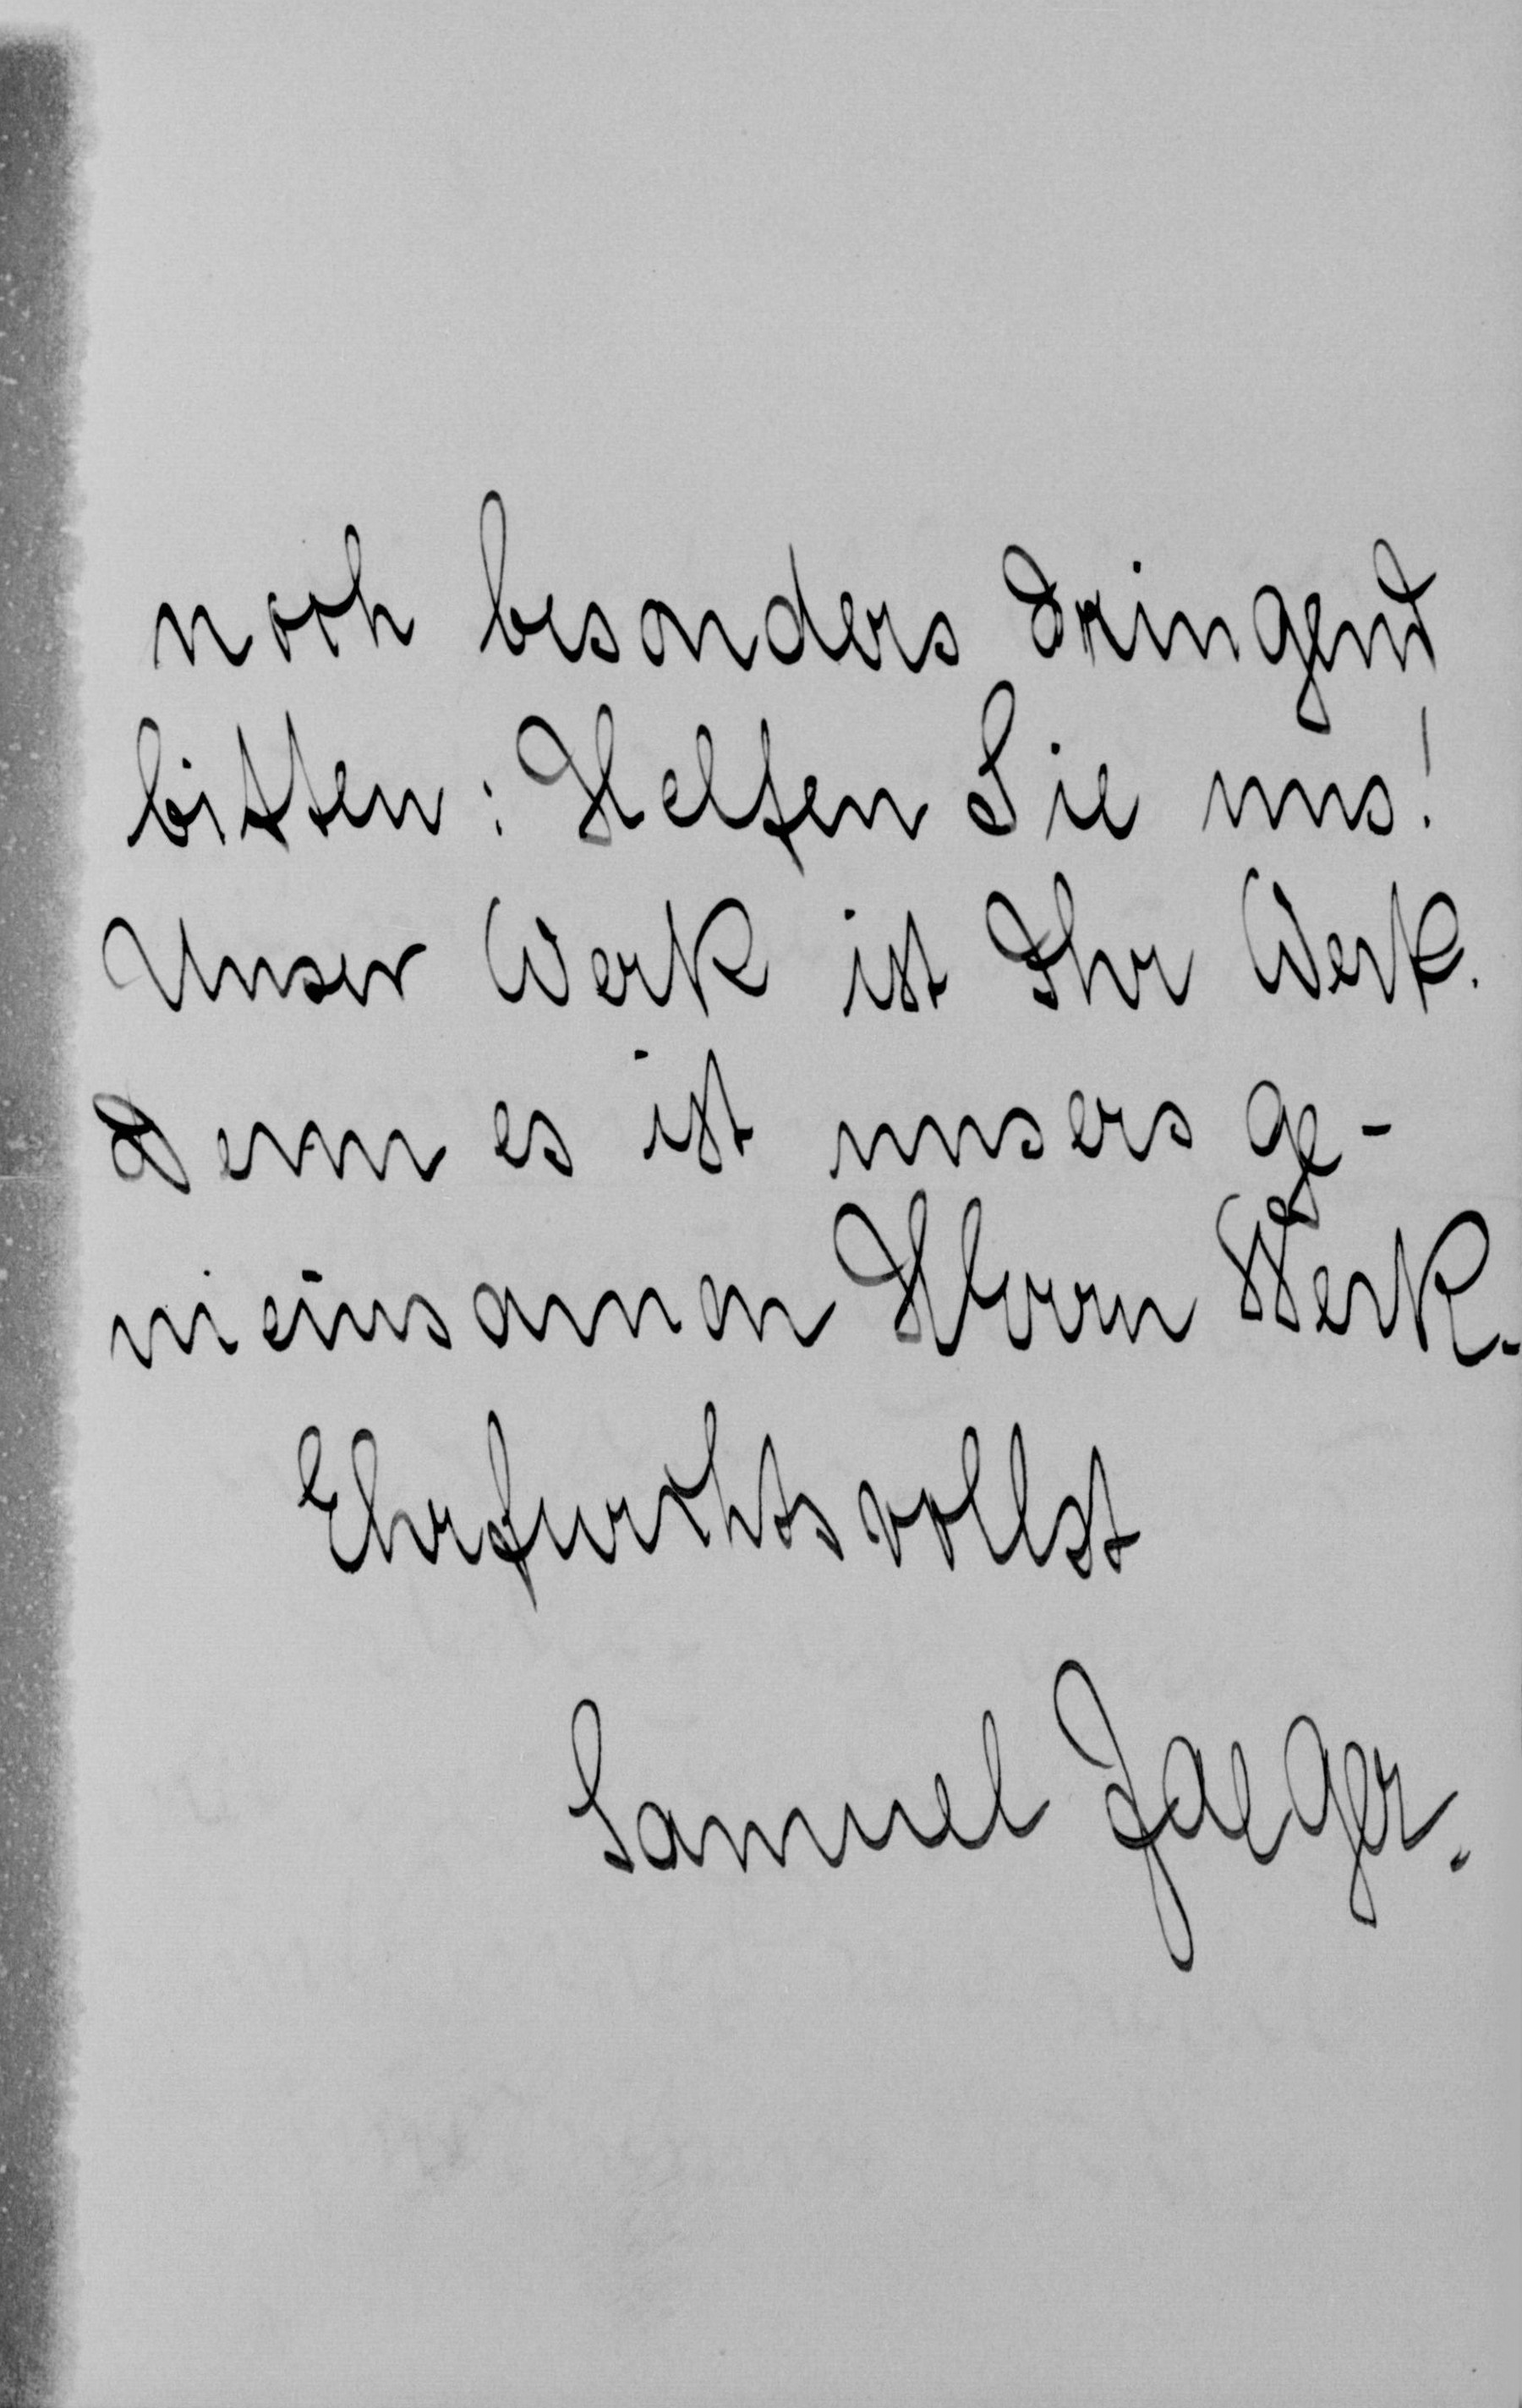 noch besonders dringend
bitten: Helfen Sie uns!
Unser Werk ist Ihr Werk.
Denn es ist unsers ge-
meinsamen Herrn Werk.
Ehrfurchtsvollst
Samuel Jaeger.